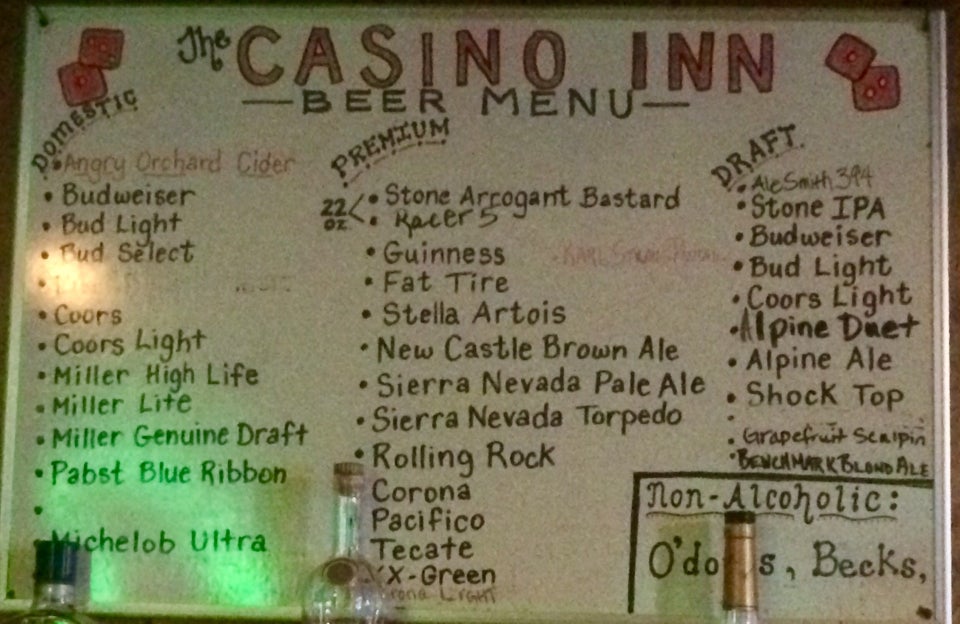 The CASINO INN
BEER MENU
DOMESTIC
• Angry Orchard Cider
• Budweiser
• Bud Light
• Bud Select
•
• Coors
• Coors Light
• Miller High Life
• Miller Lite
• Miller Genuine Draft
• Pabst Blue Ribbon
•
• Michelob Ultra
PREMIUM
22 oz
• Stone Arrogant Bastard
• Racer 5
• Guinness
• Fat Tire
• Stella Artois
• New Castle Brown Ale
• Sierra Nevada Pale Ale
• Sierra Nevada Torpedo
• Rolling Rock
Corona
Pacifico
Tecate
XX-Green
Corona Light
DRAFT
• AleSmith 394
• Stone IPA
• Budweiser
• Bud Light
• Coors Light
• Alpine Duet
• Alpine Ale
• Shock Top
•
• Grapefruit Sculpin
• BENCHMARK BLOND ALE
Non-Alcoholic:
O'do s, Becks,